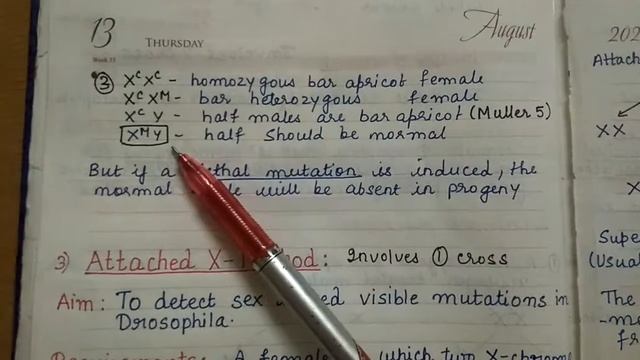 13 THURSDAY
Week 33
August
③ XᶜXᶜ - homozygous bar apricot female
XᶜXᴹ - bar heterozygous female
XᶜY - half males are bar apricot (Muller 5)
XᴹY - half should be normal
But if a mutation is induced, the
normal will be absent in progeny
3) Attached X- : Involves ① cross
Aim: To detect sex visible mutations in
Drosophila.
A female which two X-chrom
202
Attach
XX
X
Supe
(Usua
The
-mo
fr